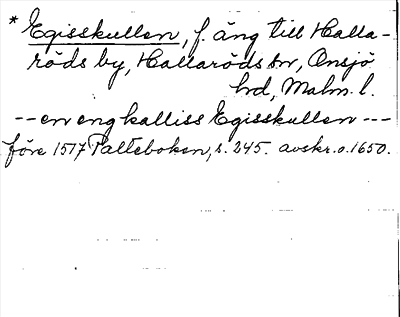 * Egisskullen, f. äng till Halla-
röds by, Hallaröds sn, Onsjö
hd, Malm. l.
-- en eng kalliss Egisskullen ---
före 1517 Palteboken, s. 245. avskr. o. 1650.